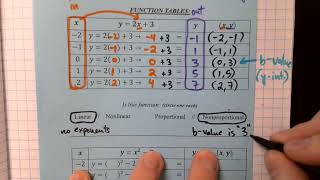 in
out
FUNCTION TABLES:
x y = 2x + 3 y (x, y)
-2 y = 2(-2) + 3 → -4 + 3 -1 (-2, -1)
-1 y = 2(-1) + 3 → -2 + 3 1 (-1, 1)
0 y = 2(0) + 3 → 0 + 3 3 (0, 3) b-value
1 y = 2(1) + 3 → 2 + 3 5 (1, 5) (y-int)
2 y = 2(2) + 3 → 4 + 3 7 (2, 7)
Is this function: (circle one each)
Linear Nonlinear Proportional Nonproportional
no exponents b-value is "3"
x y = x² y (x, y)
-2 y = ( )² - 2
-1 y = ( )² - 2